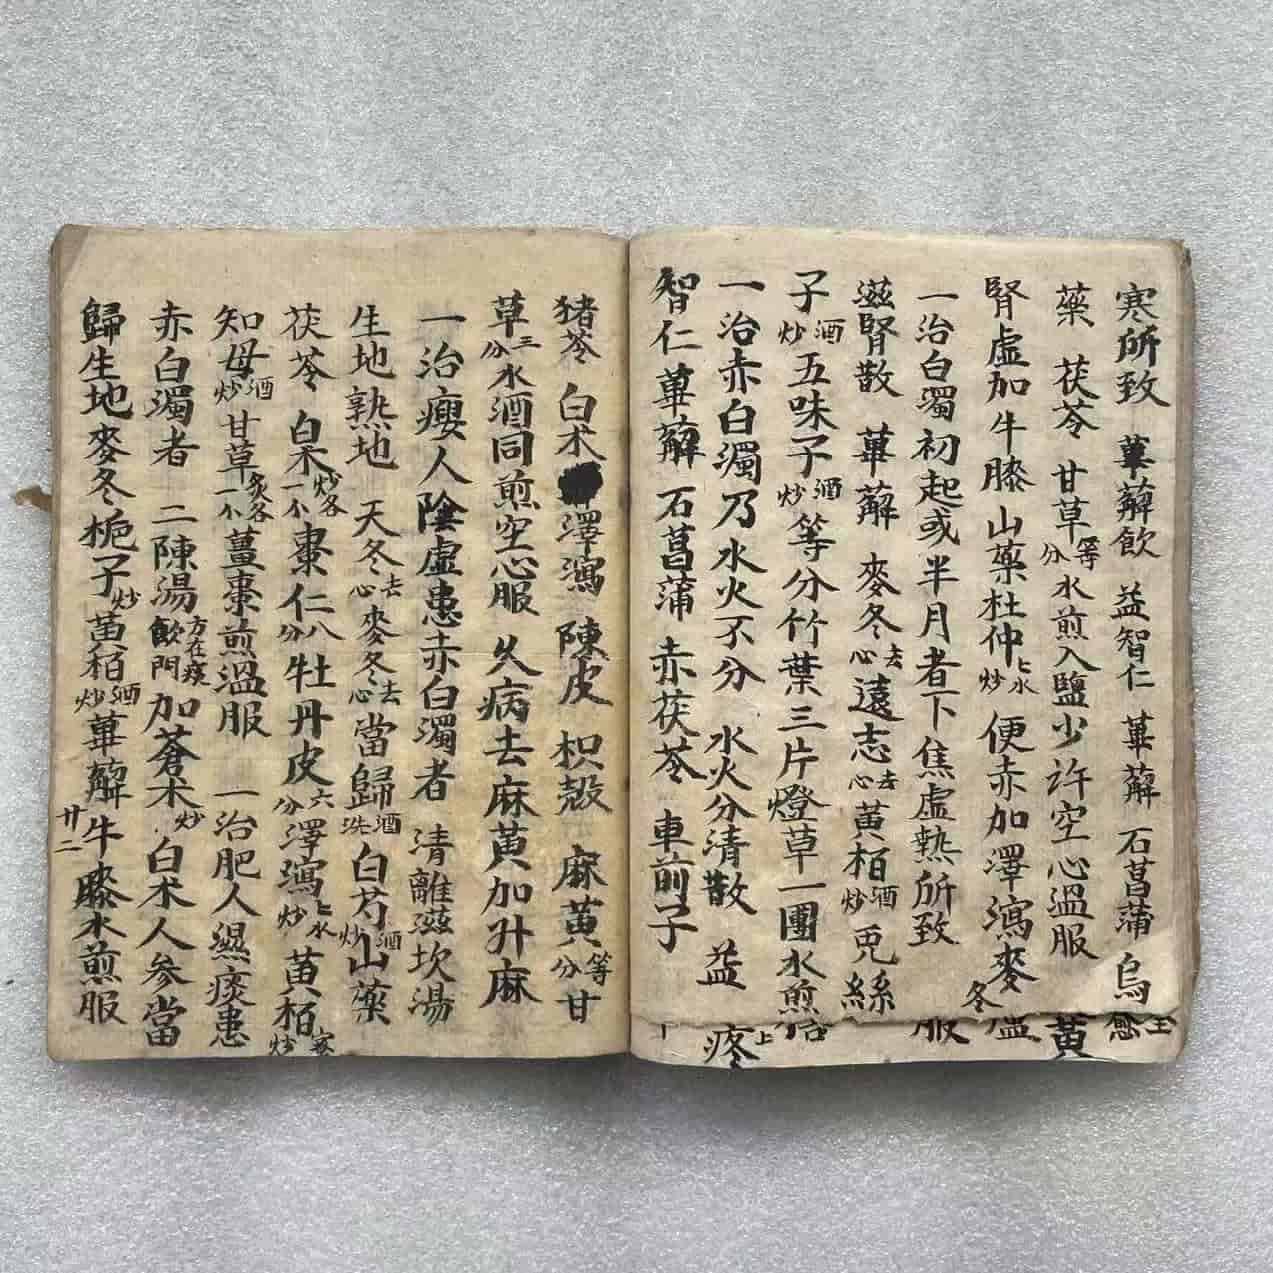 寒所致 萆薢飲 益智仁 萆薢 石菖蒲 烏
藥 茯苓 甘草等分水煎入鹽少許空心溫服
腎虛加牛膝山藥杜仲炒便赤加澤瀉麥冬
一治白濁初起或半月者下焦虛熱所致
滋腎散 萆薢 麥冬去心遠志去心黃栢酒炒兎絲
子酒炒五味子酒炒等分竹葉三片燈草一團水煎
一治赤白濁乃水火不分 水火分清散 益
智仁萆薢 石菖蒲 赤茯苓 車前子
猪苓 白朮 澤瀉 陳皮 枳殼 麻黃等分甘
草三分水酒同煎空心服 久病去麻黃加升麻
一治瘦人陰虛患赤白濁者 清離滋坎湯
生地熟地 天冬去心麥冬去心當歸酒洗白芍酒炒山藥
茯苓 白朮炒各一小棗仁八分牡丹皮六分澤瀉炒黃栢蜜炒
知母酒炒甘草炙各一小薑棗煎溫服 一治肥人濕痰患
赤白濁者 二陳湯方在痰飲門加蒼朮炒白朮人參當
歸生地麥冬梔子炒黃栢酒炒萆薢牛膝水煎服
廿二
黃
疼上